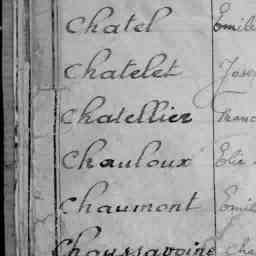 Chatel Emile
Chatelet Jose
Chatellier Franc
Chauloux Elie
Chaumont Emil
Choussavoine Cha